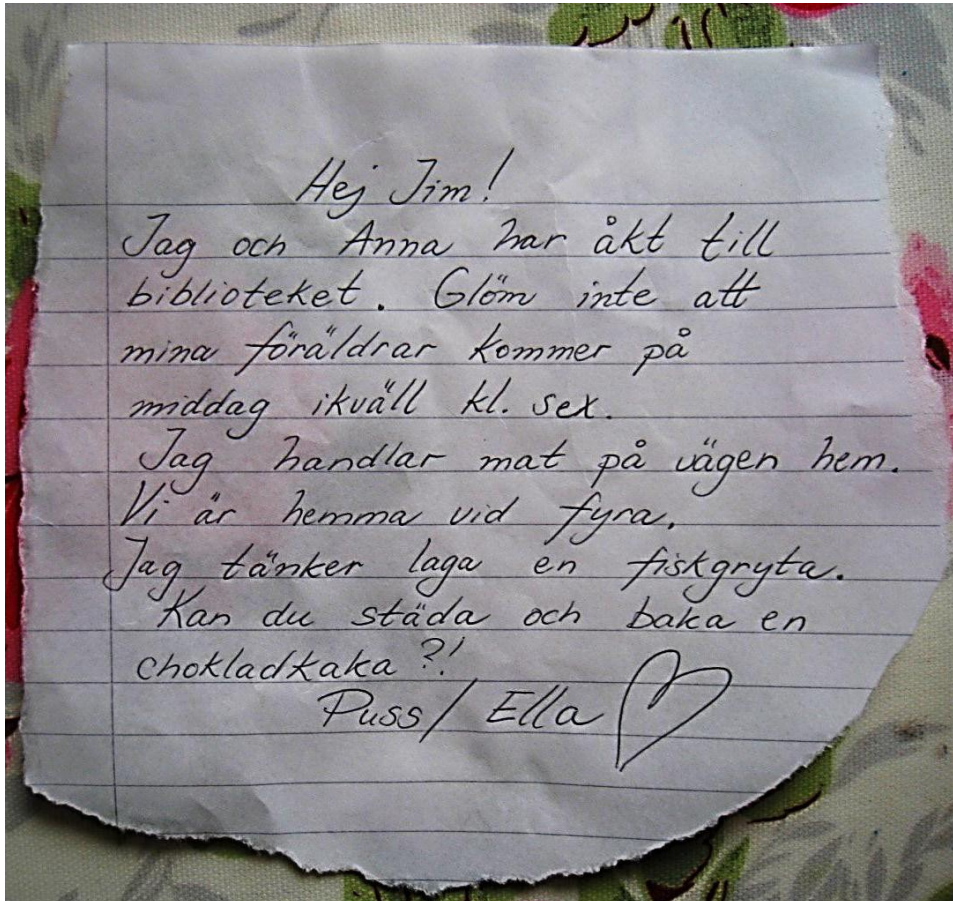 Hej Jim!
Jag och Anna har åkt till
biblioteket. Glöm inte att
mina föräldrar kommer på
middag ikväll kl. sex.
Jag handlar mat på vägen hem.
Vi är hemma vid fyra.
Jag tänker laga en fiskgryta.
Kan du städa och baka en
chokladkaka?!
Puss/ Ella